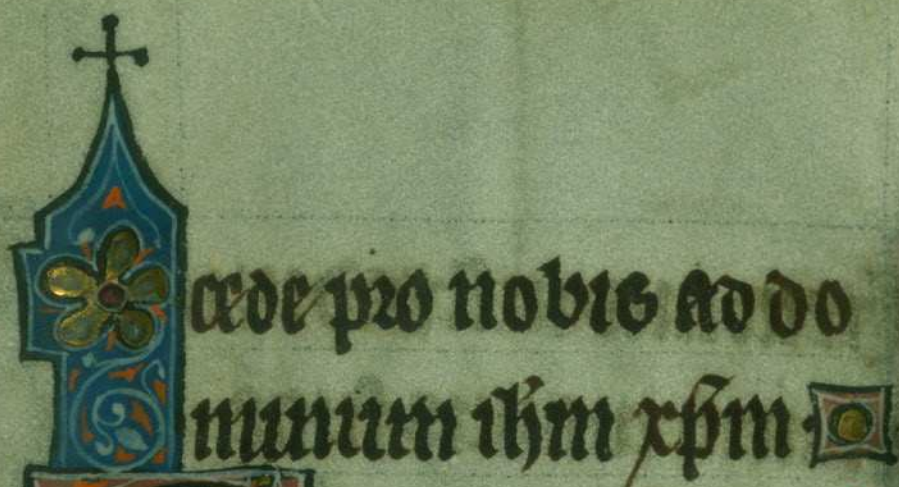 cede pro nobis ad do
minum ih̄m xp̄m